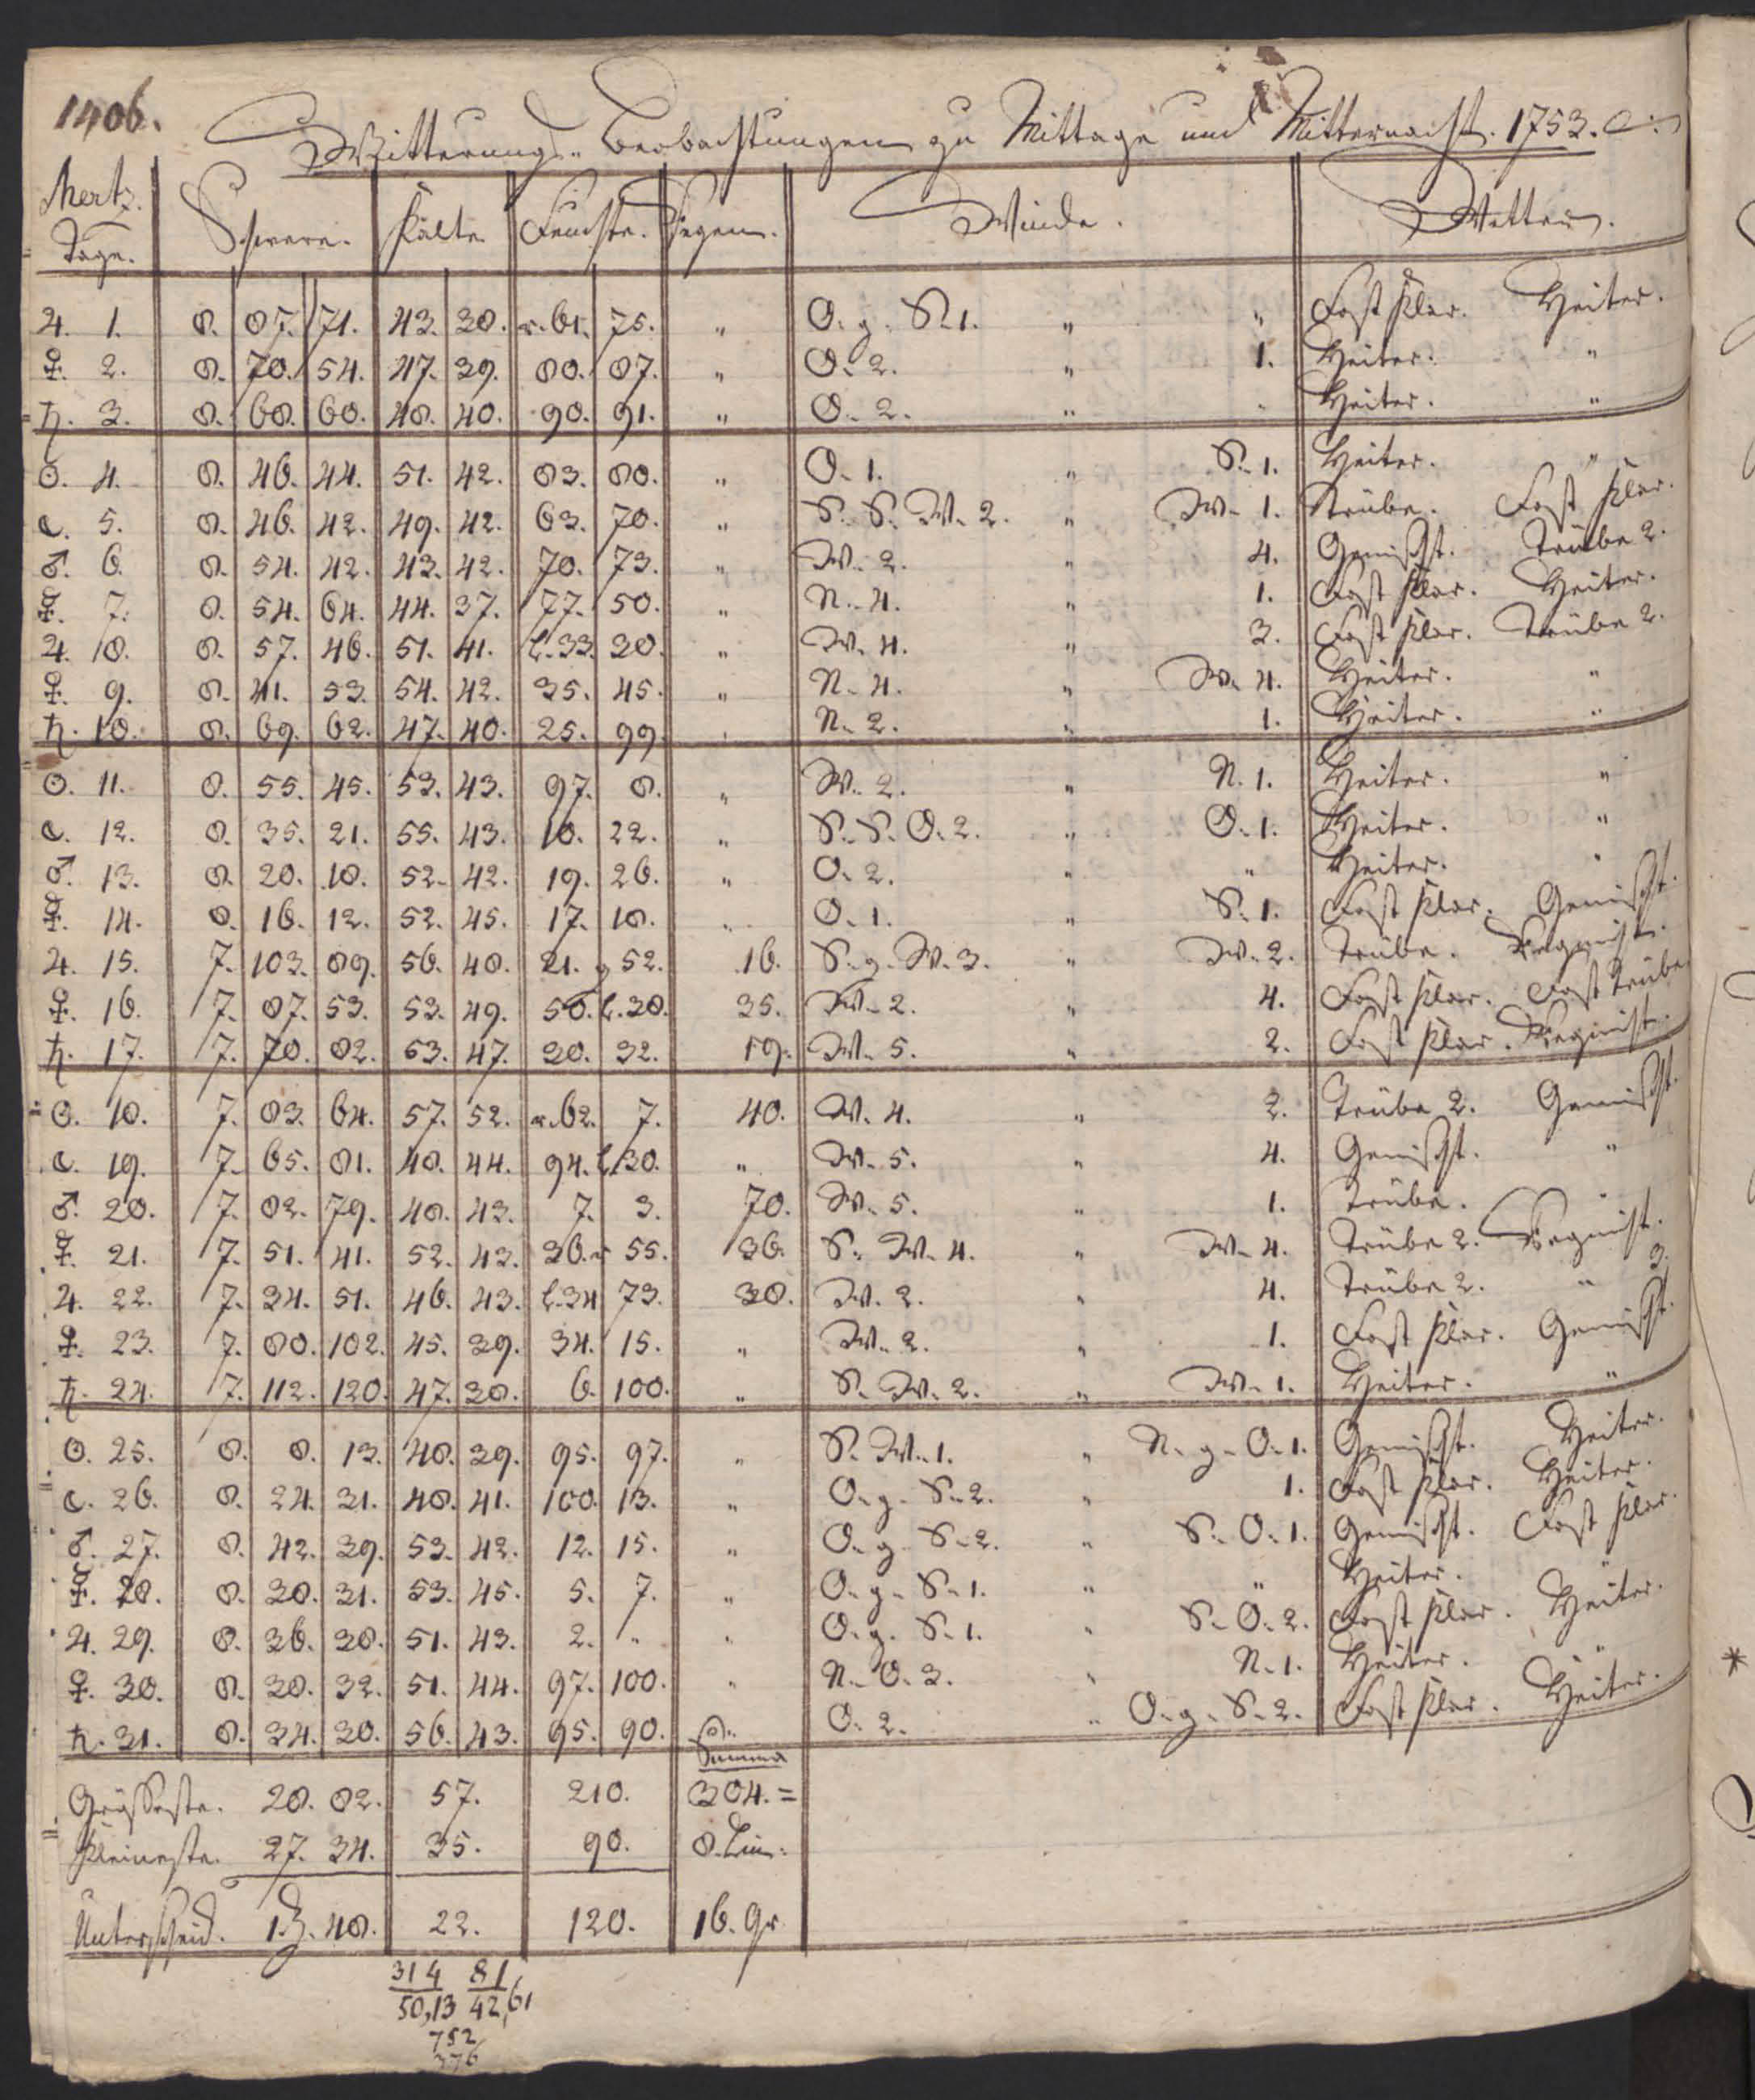 1406.
Witterungs-Beobachtungen zu Mittage und Mitternacht. 1753.
Mertz. Tage. Schwere. Kälte Feuchte. Regen. Winde. Wetter.
♃. 1. 8. 87. 71. 43. 38. r. 61. 75. " O. g. S. 1. " " Fast klar. Heiter.
♀. 2. 8. 70. 54. 47. 39. 80. 87. " O. 2. " 1. Heiter. "
♄. 3. 8. 68. 60. 48. 40. 90. 91. " O. 2. " " Heiter. "
☉. 4. 8. 46. 44. 51. 42. 83. 80. " O. 1. " S. 1. Heiter. "
☾. 5. 8. 46. 42. 49. 42. 63. 70. " S. S. W. 2. " W. 1. Trübe. Fast klar.
♂. 6. 8. 54. 42. 43. 42. 70. 73. " W. 2. " 4. Gemischt. Trübe 2.
☿. 7. 8. 54. 64. 44. 37. 77. 50. " N. 4. " 1. Fast klar. Heiter.
♃. 8. 8. 57. 46. 51. 41. l. 33. 20. " W. 4. " 3. Fast klar. Trübe 2.
♀. 9. 8. 41. 53. 54. 42. 35. 45. " N. 4. " W. 4. Heiter. "
♄. 10. 8. 69. 62. 47. 40. 25. 99. " N. 2. " 1. Heiter. "
☉. 11. 8. 55. 45. 53. 43. 97. 8. " W. 2. " N. 1. Heiter. "
☾. 12. 8. 35. 21. 55. 43. 10. 22. " S. S. O. 2. " O. 1. Heiter. "
♂. 13. 8. 20. 18. 52. 42. 19. 26. " O. 2. " " Heiter. "
☿. 14. 8. 16. 12. 52. 45. 17. 18. " O. 1. " S. 1. Fast klar. Gemischt.
♃. 15. 7. 103. 89. 56. 48. 21. g 52. 16. S. g. W. 3. " W. 2. Trübe. Regnicht.
♀. 16. 7. 87. 53. 53. 49. 50. l. 28. 35. W. 2. " 4. Fast klar. Fast Trübe
♄. 17. 7. 70. 82. 53. 47. 20. 32. 19. W. 5. " 2. Fast klar. Regnicht.
☉. 18. 7. 83. 64. 57. 52. r. 62. 7. 40. W. 4. " 2. Trübe 2. Gemischt.
☾. 19. 7. 65. 81. 48. 44. 94. l. 30. " W. 5. " 4. Gemischt. "
♂. 20. 7. 82. 79. 48. 43. 7. 3. 70. W. 5. " 1. Trübe. "
☿. 21. 7. 51. 41. 52. 43. 36. r 55. 36. S. W. 4. " W. 4. Trübe 2. Regnicht.
♃. 22. 7. 34. 51. 46. 43. l. 34. 73. 30. W. 2. " 4. Trübe 2. " 3.
♀. 23. 7. 80. 102. 45. 39. 34. 15. " W. 2. " 1. Fast klar. Gemischt.
♄. 24. 7. 112. 120. 47. 38. 6. 100. " S. W. 2. " W. 1. Heiter. "
☉. 25. 8. 8. 13. 48. 39. 95. 97. " S. W. 1. " N. g. O. 1. Gemischt. Heiter.
☾. 26. 8. 24. 31. 48. 41. 100. 13. " O. g. S. 2. " 1. Fast klar. Heiter.
♂. 27. 8. 42. 39. 53. 42. 12. 15. " O. g. S. 2. " S. O. 1. Gemischt. Fast klar.
☿. 28. 8. 30. 31. 53. 45. 5. 7. " O. g. S. 1. " " Heiter.
♃. 29. 8. 36. 38. 51. 43. 2. " " O. g. S. 1. " S. O. 2. Fast klar. Heiter.
♀. 30. 8. 30. 32. 51. 44. 97. 100. " N. O. 3. " N. 1. Heiter. "
♄. 31. 8. 34. 30. 56. 43. 95. 90. O. 2. " O. g. S. 2. Fast klar. Heiter.
Summa
Grösseste. 28. 82. 57. 210. 304. =
Kleineste. 27. 34. 35. 90. 8. Lin.
Unterscheid. 1. Z. 48. 22. 120. 16. gr
314 81
50,13 42,61
752
376